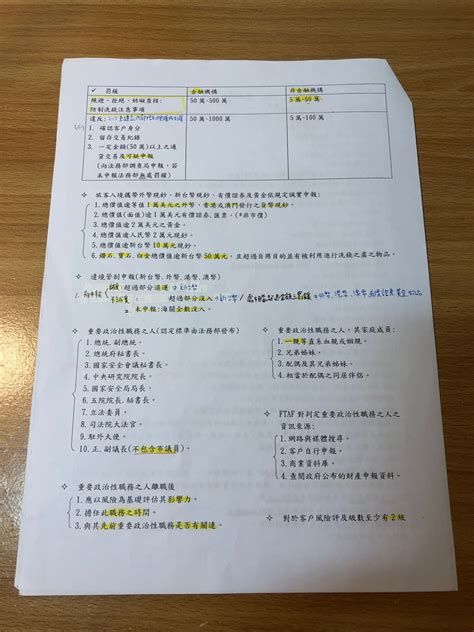 ✓ 罰鍰 金融機構 非金融機構
規避、拒絕、妨礙查核: 50 萬-500 萬 5 萬-50 萬
防制洗錢注意事項
違反: 50 萬-1000 萬 5 萬-100 萬
1. 確認客戶身分
2. 留存交易紀錄
3. 一定金額(50 萬)以上之通
貨交易及可疑申報
(向法務部調查局申報,若
未申報法務部無處罰鍰)
✧ 旅客入境攜帶外幣現鈔、新台幣現鈔、有價證券及黃金依規定誠實申報:
1. 總價值逾等值 1 萬美元之外幣、香港或澳門發行之貨幣現鈔。
2. 總價值(面值)逾 1 萬美元有價證券、匯票。(≠非市價)
3. 總價值逾 2 萬美元之黃金。
4. 總價值逾人民幣 2 萬元現鈔。
5. 總價值逾新台幣 10 萬元現鈔。
6. 鑽石、寶石、白金總價值逾新台幣 50 萬元,且超過自用目的並有被利用進行洗錢之虞之物品。
✧ 邊境管制申報(新台幣、外幣、港幣、澳幣)
超過部分退運
超過部分沒入
未申報:海關全數沒入。
✧ 重要政治性職務之人(認定標準由法務部發布)
1. 總統、副總統。
2. 總統府秘書長。
3. 國家安全會議秘書長。
4. 中央研究院院長。
5. 國家安全局局長。
6. 五院院長、秘書長。
7. 立法委員。
8. 司法院大法官。
9. 駐外大使。
10. 正、副議長(不包含市議員)。
✧ 重要政治性職務之人,其家庭成員:
1. 一親等直系血親或姻親。
2. 兄弟姊妹。
3. 配偶及其兄弟姊妹。
4. 相當於配偶之同居伴侶。
✧ FTAF 對判定重要政治性職務之人之
資訊來源:
1. 網路與媒體搜尋。
2. 客戶自行申報。
3. 商業資料庫。
4. 查閱政府公布的財產申報資料。
✧ 重要政治性職務之人離職後
1. 應以風險為基礎評估其影響力。
2. 擔任此職務之時間。
3. 與其先前重要政治性職務是否有關連。
✧ 對於客戶風險評及級數至少有 2 級